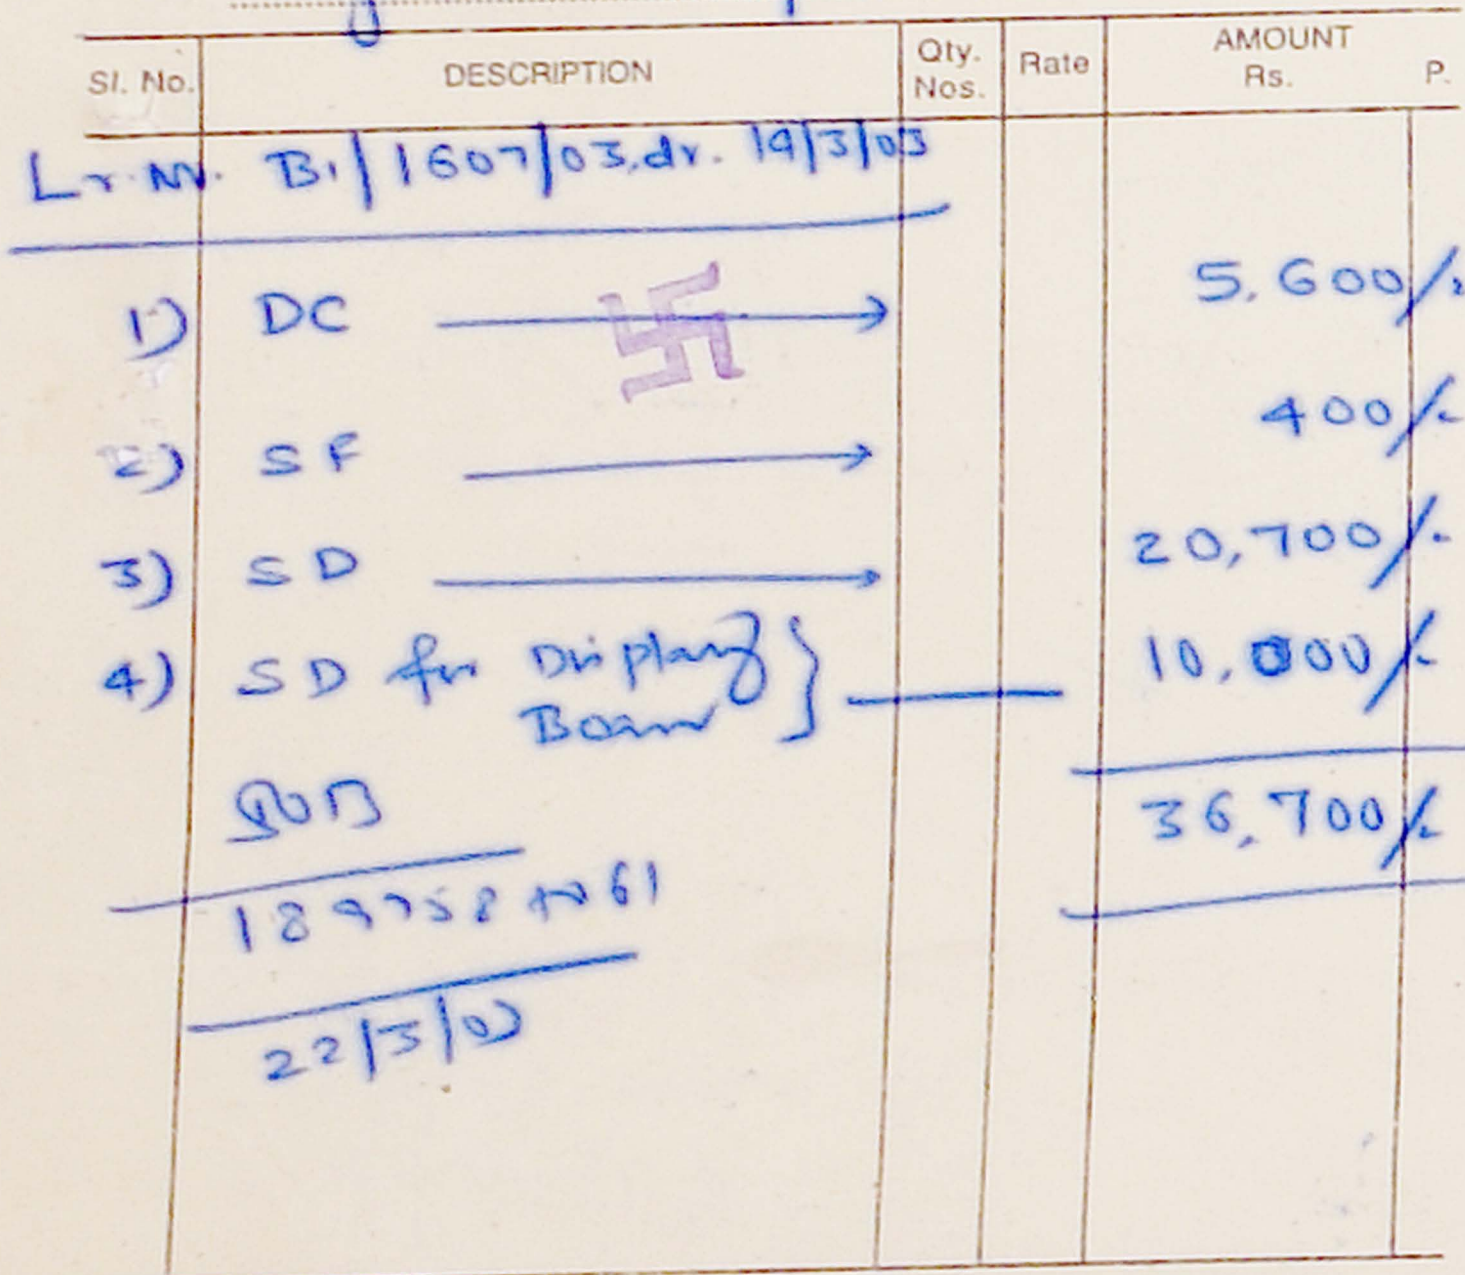 Sl. No. DESCRIPTION Qty. Nos. Rate AMOUNT Rs. P.
Lr. No. B1/1607/03, dt. 19/3/03
1) DC 5,600/-
2) SF 400/-
3) SD 20,700/-
4) SD for Display 10,000/-
Board
36,700/-
189758 to 61
22/3/03